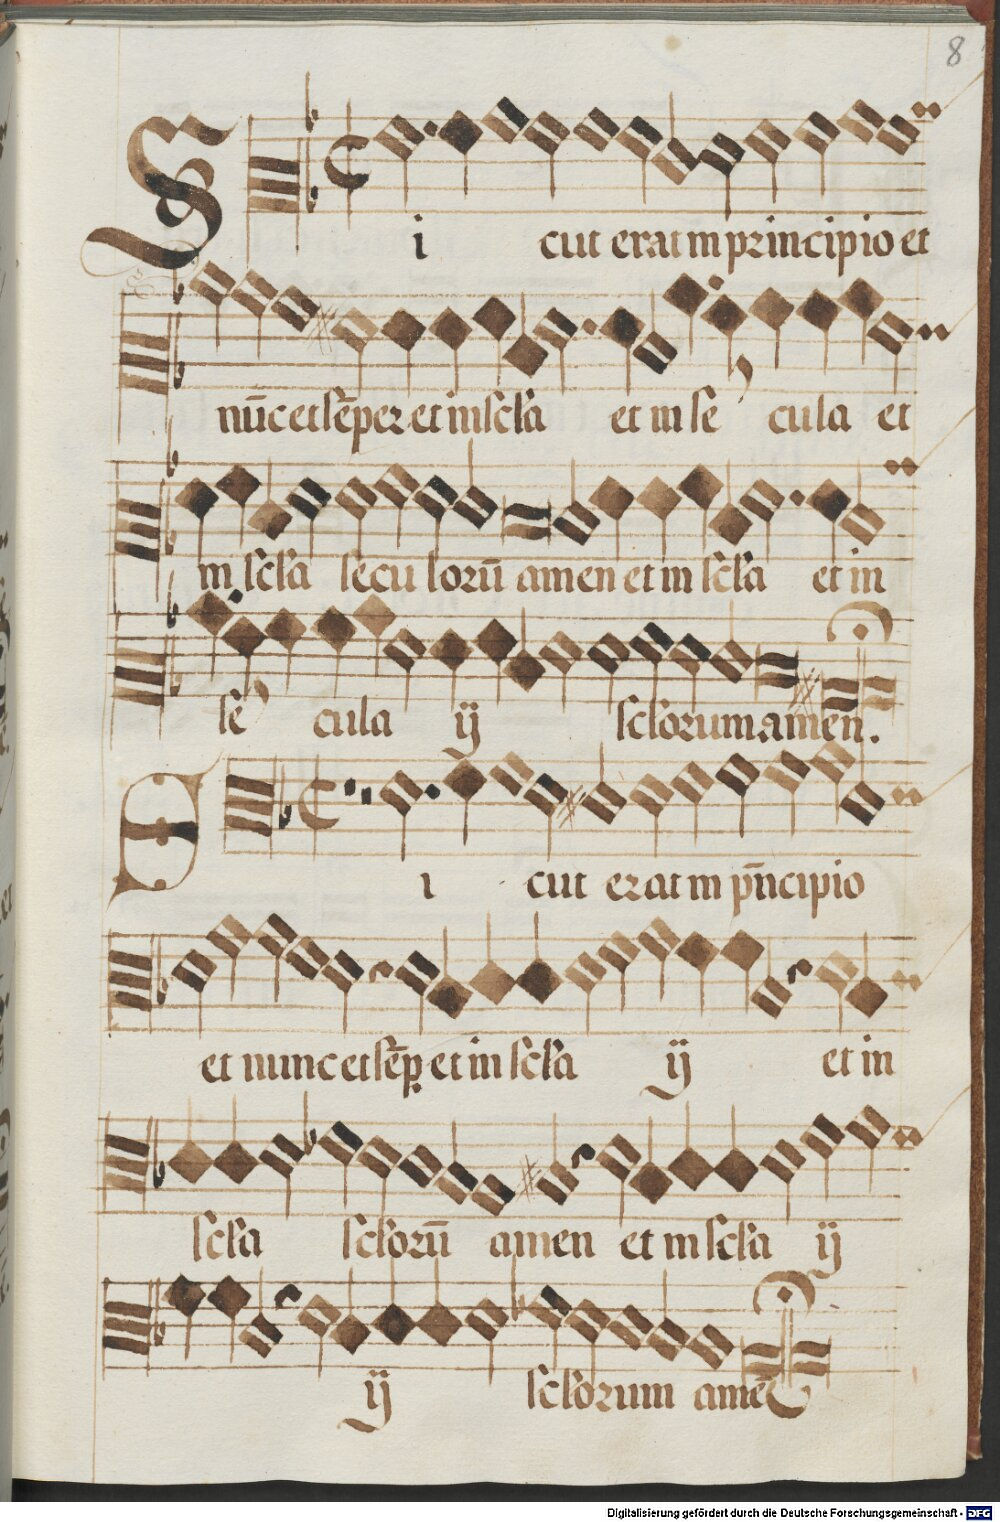 8
Si cut erat in principio et
nūc et sēper et in scl'a et in se cula et
in scl'a secu lorū amen et in scl'a et in
se cula ij scl'orum amen.
Si cut erat in pn̄cipio
et nunc et sēp̣ et in scl'a ij et in
scl'a scl'orū amen et in scl'a ij
ij scl'orum amē
Digitalisierung gefördert durch die Deutsche Forschungsgemeinschaft - DFG